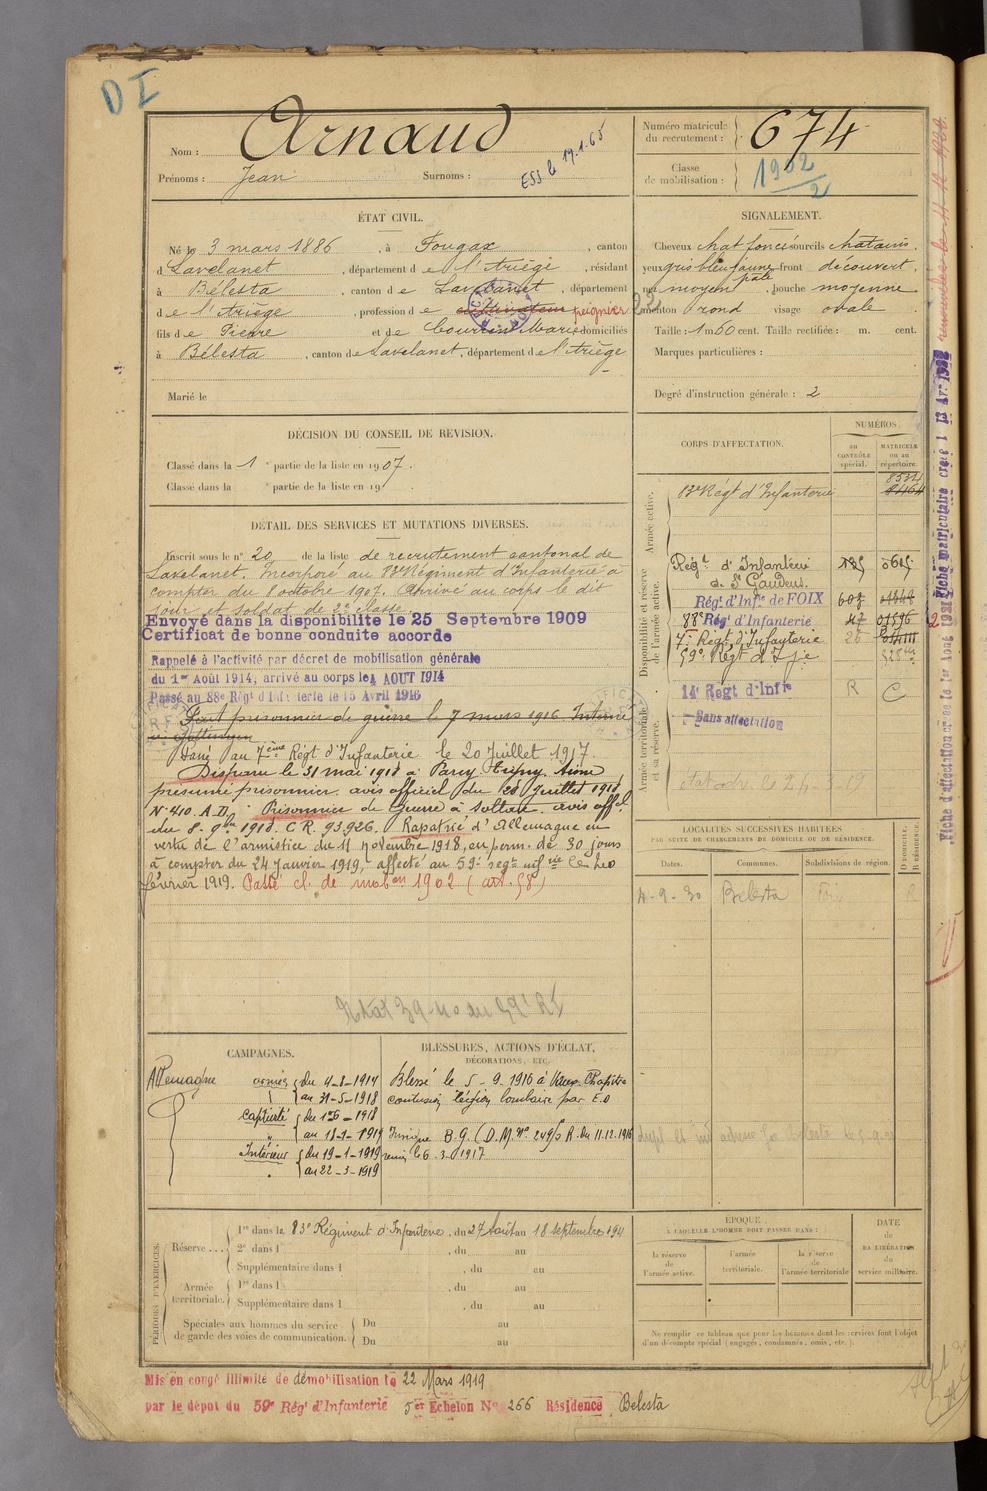 D I
Nom : Arnaud
Prénoms : Jean Surnoms :
ESS le 19.1.65
Numéro matricule du recrutement : 674
Classe de mobilisation : 1902/2
ÉTAT CIVIL.
Né le 3 mars 1886, à Fougax, canton
d Lavelanet, département de l'Ariège, résidant
à Bélesta, canton de Lavelanet, département
de l'Ariège, profession de cultivateur peigneur
fils de Pierre et de Courrent Marie domiciliés
à Bélesta, canton de Lavelanet, département de l'Ariège
Marié le
SIGNALEMENT.
Cheveux chat foncé sourcils chatains,
yeux gris bleu jaune pâle front découvert,
nez moyen, bouche moyenne
menton rond visage ovale
Taille : 1 m 60 cent. Taille rectifiée : m. cent.
Marques particulières :
Degré d'instruction générale : 2
DÉCISION DU CONSEIL DE REVISION.
Classé dans la 1e partie de la liste en 1907.
Classé dans la e partie de la liste en 19 .
DÉTAIL DES SERVICES ET MUTATIONS DIVERSES.
Inscrit sous le n° 20 de la liste de recrutement cantonal de
Lavelanet. Incorporé au 83e Régiment d'Infanterie à
compter du 8 octobre 1907. Arrivé au corps le dit
jour et soldat de 2e classe.
Envoyé dans la disponibilité le 25 Septembre 1909
Certificat de bonne conduite accordé
Rappelé à l'activité par décret de mobilisation générale
du 1er Août 1914, arrivé au corps le 4 AOUT 1914
Passé au 88e Régt d'Infanterie le 15 Avril 1916
Fait prisonnier de guerre le 7 mars 1916 Interné
Passé au 7ème Régt d'Infanterie le 20 Juillet 1917.
Disparu le 31 mai 1918 à Parcy Tigny. Aisne
présumé prisonnier. avis officiel du 28 Juillet 1918
N° 410. A.D. Prisonnier de guerre à Soltau. avis offel
du 8. 9bre 1918. C.R. 93.926. Rapatrié d'Allemagne en
vertu de l'armistice du 11 novembre 1918, en perm. de 30 jours
à compter du 24 janvier 1919, affecté au 59e régt infrie le
février 1919. Passé cl. de mobon 1902 (art. 58)
CORPS D'AFFECTATION.
NUMÉROS
au CONTRÔLE spécial.
MATRICULE ou au répertoire.
Armée active.
83e Régt d'Infanterie 8534
8464
Disponibilité et réserve de l'armée active.
Régt d'Infanterie
de St Gaudens.
Régt d'Infie de FOIX
88e Régt d'Infanterie
7e Régt d'Infanterie
59e Régt d'Infie
Armée territoriale et sa réserve.
14e Régt d'Infie R C
Sans affectation
LOCALITÉS SUCCESSIVES HABITÉES
PAR SUITE DE CHANGEMENTS DE DOMICILE OU DE RÉSIDENCE.
Dates. Communes. Subdivisions de région. D DOMICILE. R RÉSIDENCE.
4-9-30 Bélesta Foix R
CAMPAGNES.
Allemagne
armées { du 4-8-1914
au 31-5-1918
Captivité { du 1er 6-1918
au 18-1-1919
Intérieur { du 19-1-1919
au 22-3-1919
BLESSURES, ACTIONS D'ÉCLAT,
DÉCORATIONS, ETC.
Blessé le 5-9-1916 à Vaux Chapitre
contusion région lombaire par E.O
PÉRIODES D'EXERCICES.
Réserve....
1re dans le 83e Régiment d'Infanterie, du 27 Août au 18 septembre 191
2e dans l , du au
Supplémentaire dans l , du au
Armée territoriale.
1re dans l , du au
Supplémentaire dans l , du au
Spéciales aux hommes du service de garde des voies de communication.
Du au
Du au
ÉPOQUE
À LAQUELLE L'HOMME DOIT PASSER DANS :
la réserve de l'armée active.
l'armée territoriale.
la réserve de l'armée territoriale
DATE de LA LIBÉRATION du service militaire.
Ne remplir ce tableau que pour les hommes dont les services font l'objet
d'un décompte spécial (engagés, condamnés, omis, etc.).
Mis en congé illimité de démobilisation le 22 Mars 1919
par le dépôt du 59e Régt d'Infanterie 5er Echelon N° 266 Résidence Belesta